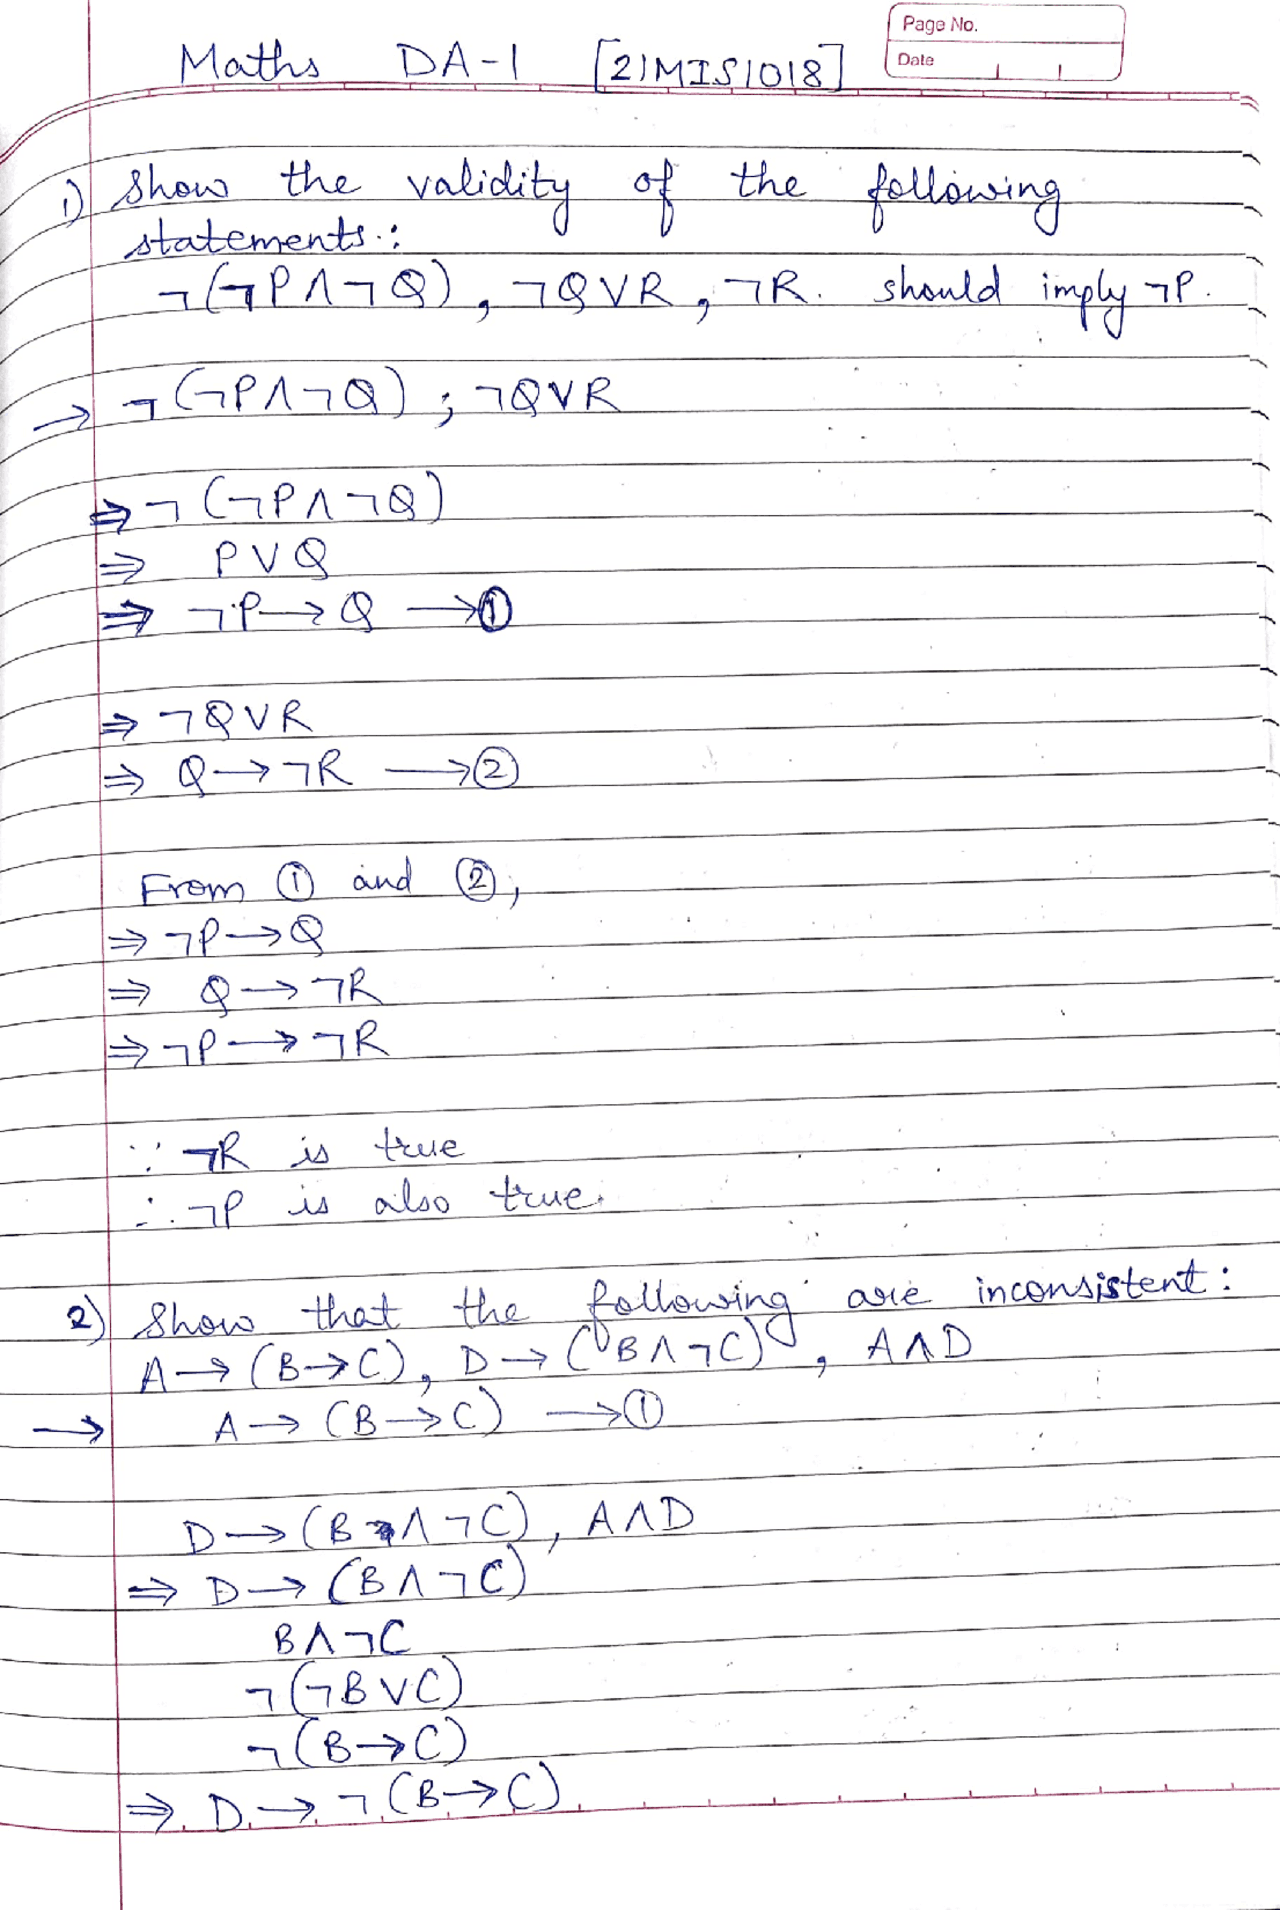 Page No.
Date
Maths DA-1 [21MIS1018]
1) Show the validity of the following
statements:
¬(¬P∧¬Q), ¬Q∨R, ¬R. should imply ¬P.
→ ¬(¬P∧¬Q) ; ¬Q∨R
⇒ ¬(¬P∧¬Q)
⇒ P∨Q
⇒ ¬P→Q →①
⇒ ¬Q∨R
⇒ Q→¬R →②
From ① and ②,
⇒ ¬P→Q
⇒ Q→¬R
⇒ ¬P→¬R
∵ ¬R is true
∴ ¬P is also true.
2) Show that the following are inconsistent:
A→(B→C), D→(B∧¬C), A∧D
→ A→(B→C) →①
D→(B∧¬C), A∧D
⇒ D→(B∧¬C)
B∧¬C
¬(¬B∨C)
¬(B→C)
⇒ D→¬(B→C)